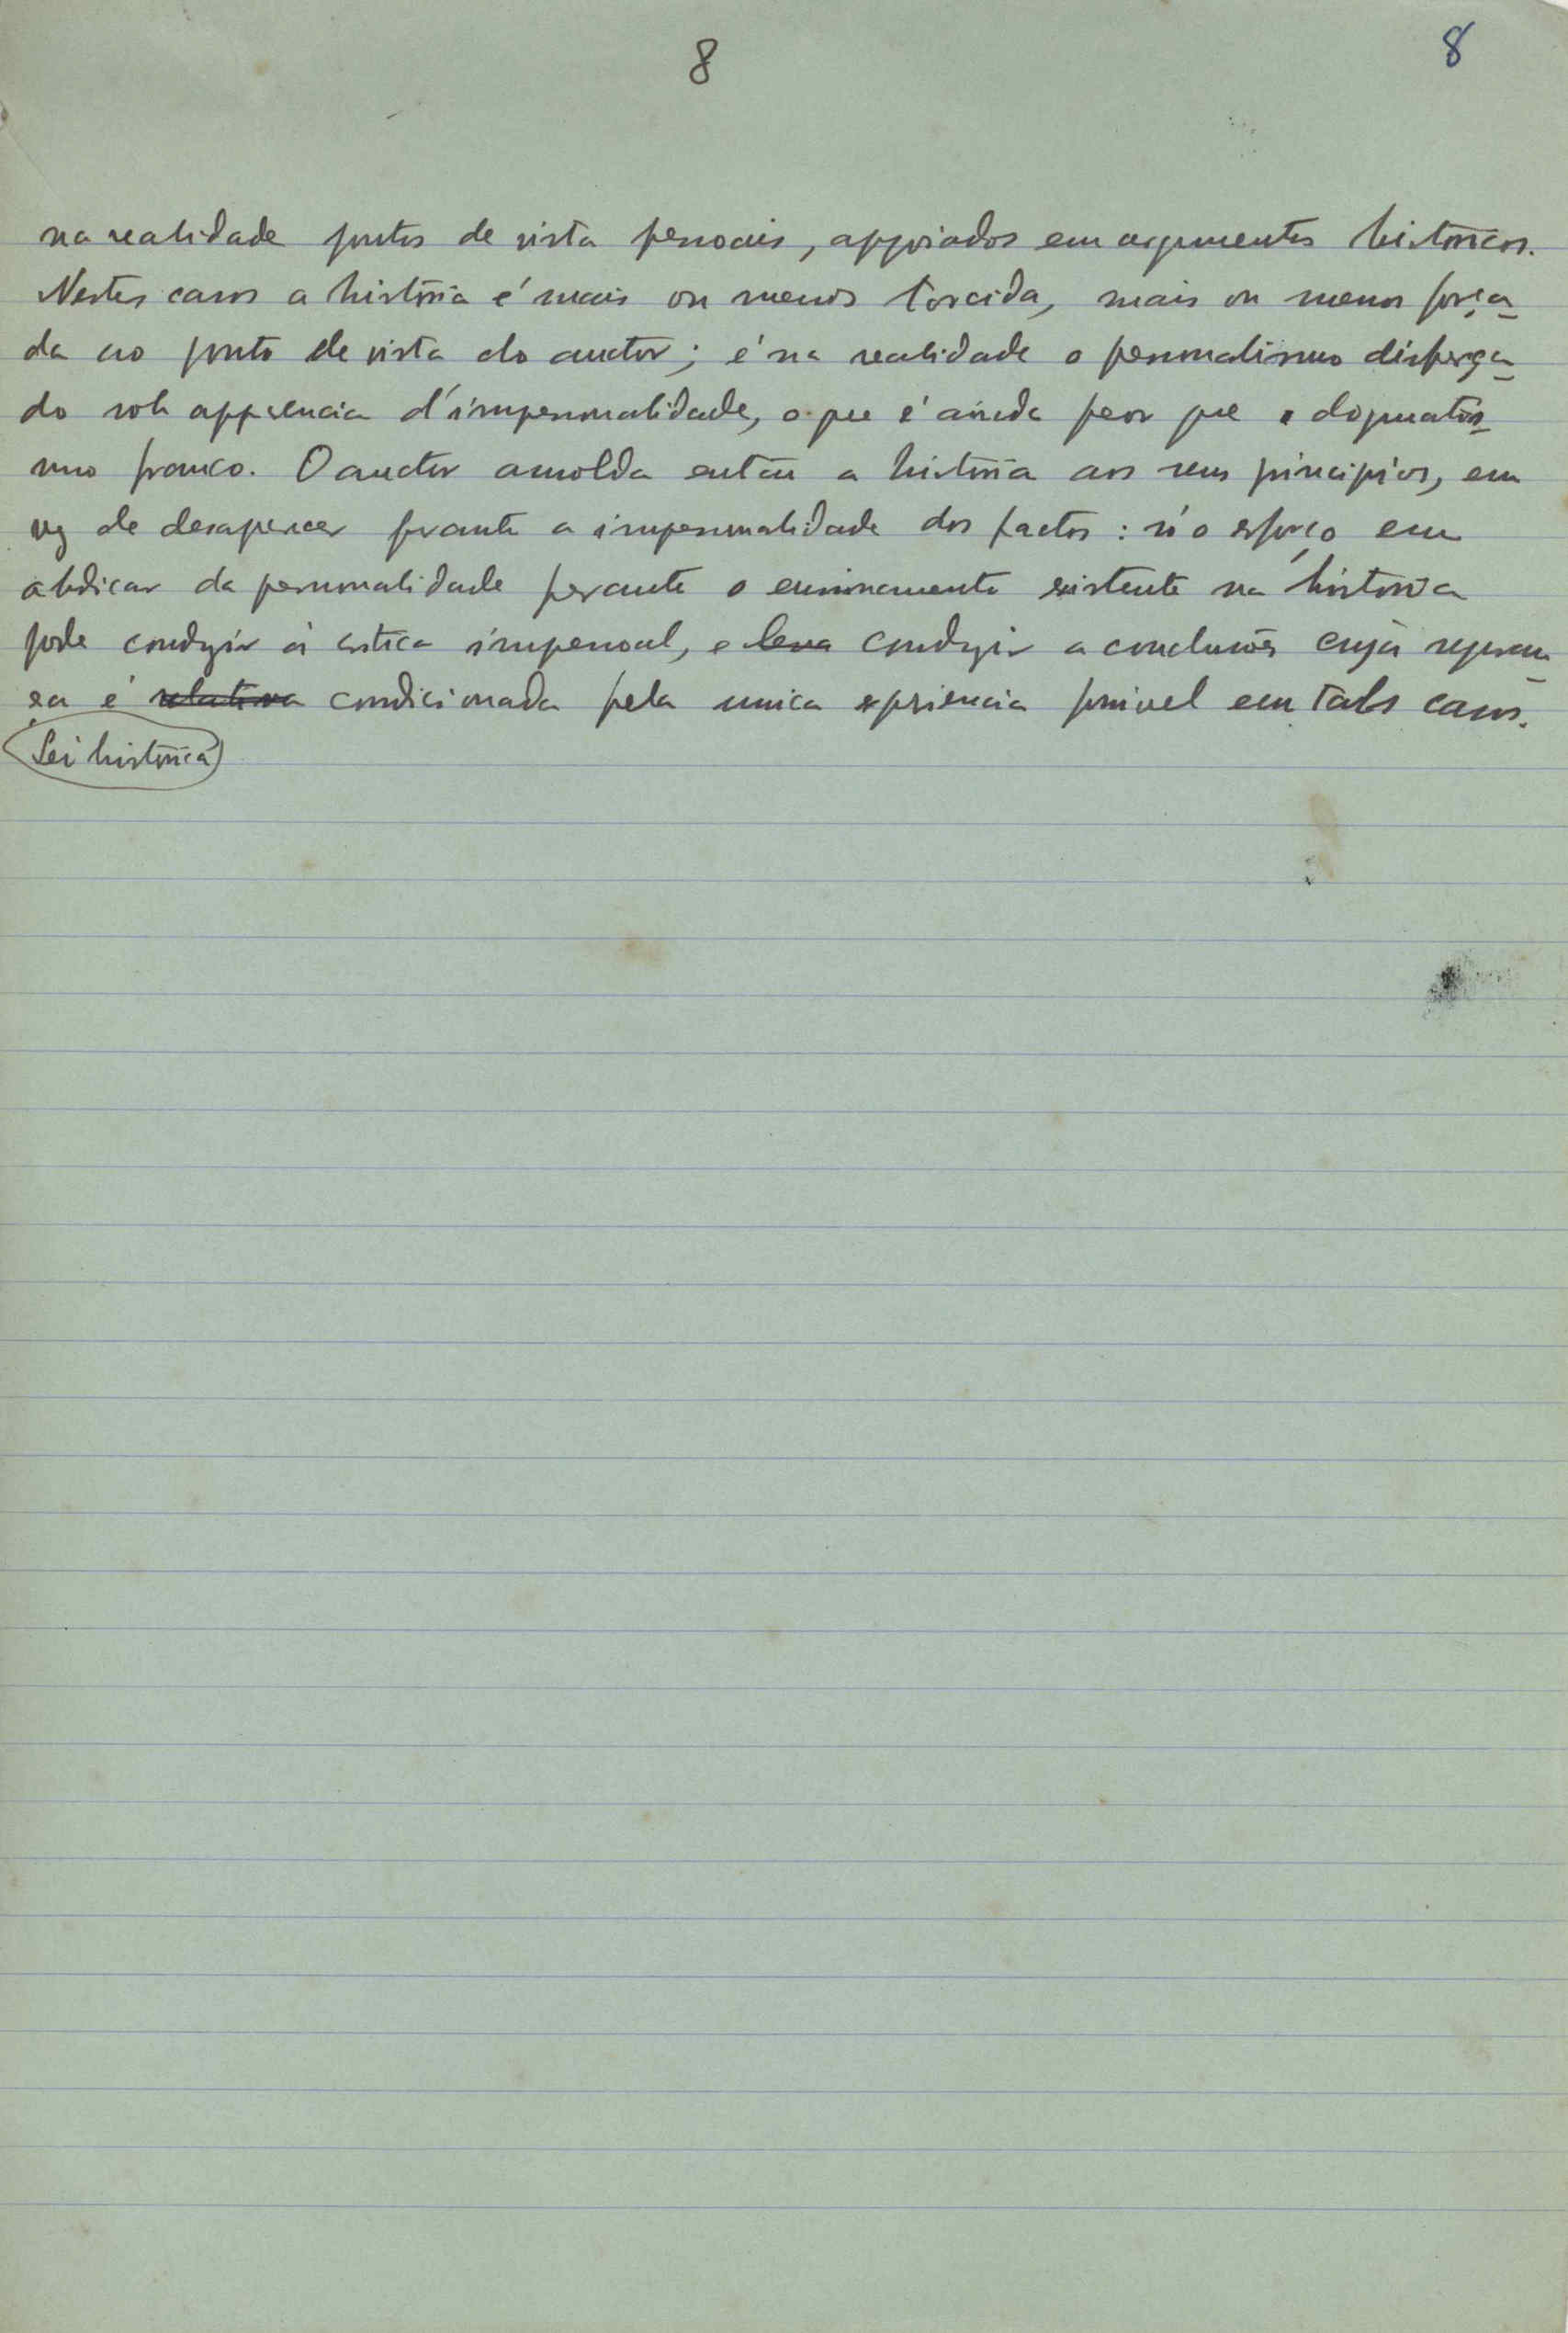 8 8
na realidade pontos de vista pessoais, appoiados em argumentos historicos.
Nestes casos a história é mais ou menos torcida, mais ou menos força-
da ao ponto de vista do auctor; é na realidade o personalismo disfarça-
do sob apparencia d'impersonalidade, o que é ainda peor que o dogmatis-
mo franco. O auctor amolda então a história aos seus principios, em
vez de desaparecer perante a impersonalidade dos factos: só o esforço em
abdicar da personalidade perante o ensinamento existente na história
pode conduzir á critica impessoal, e leva conduzir a conclusões cuja seguran-
ça é relativa condicionada pela unica experiencia possivel em taes casos.
Lei histórica